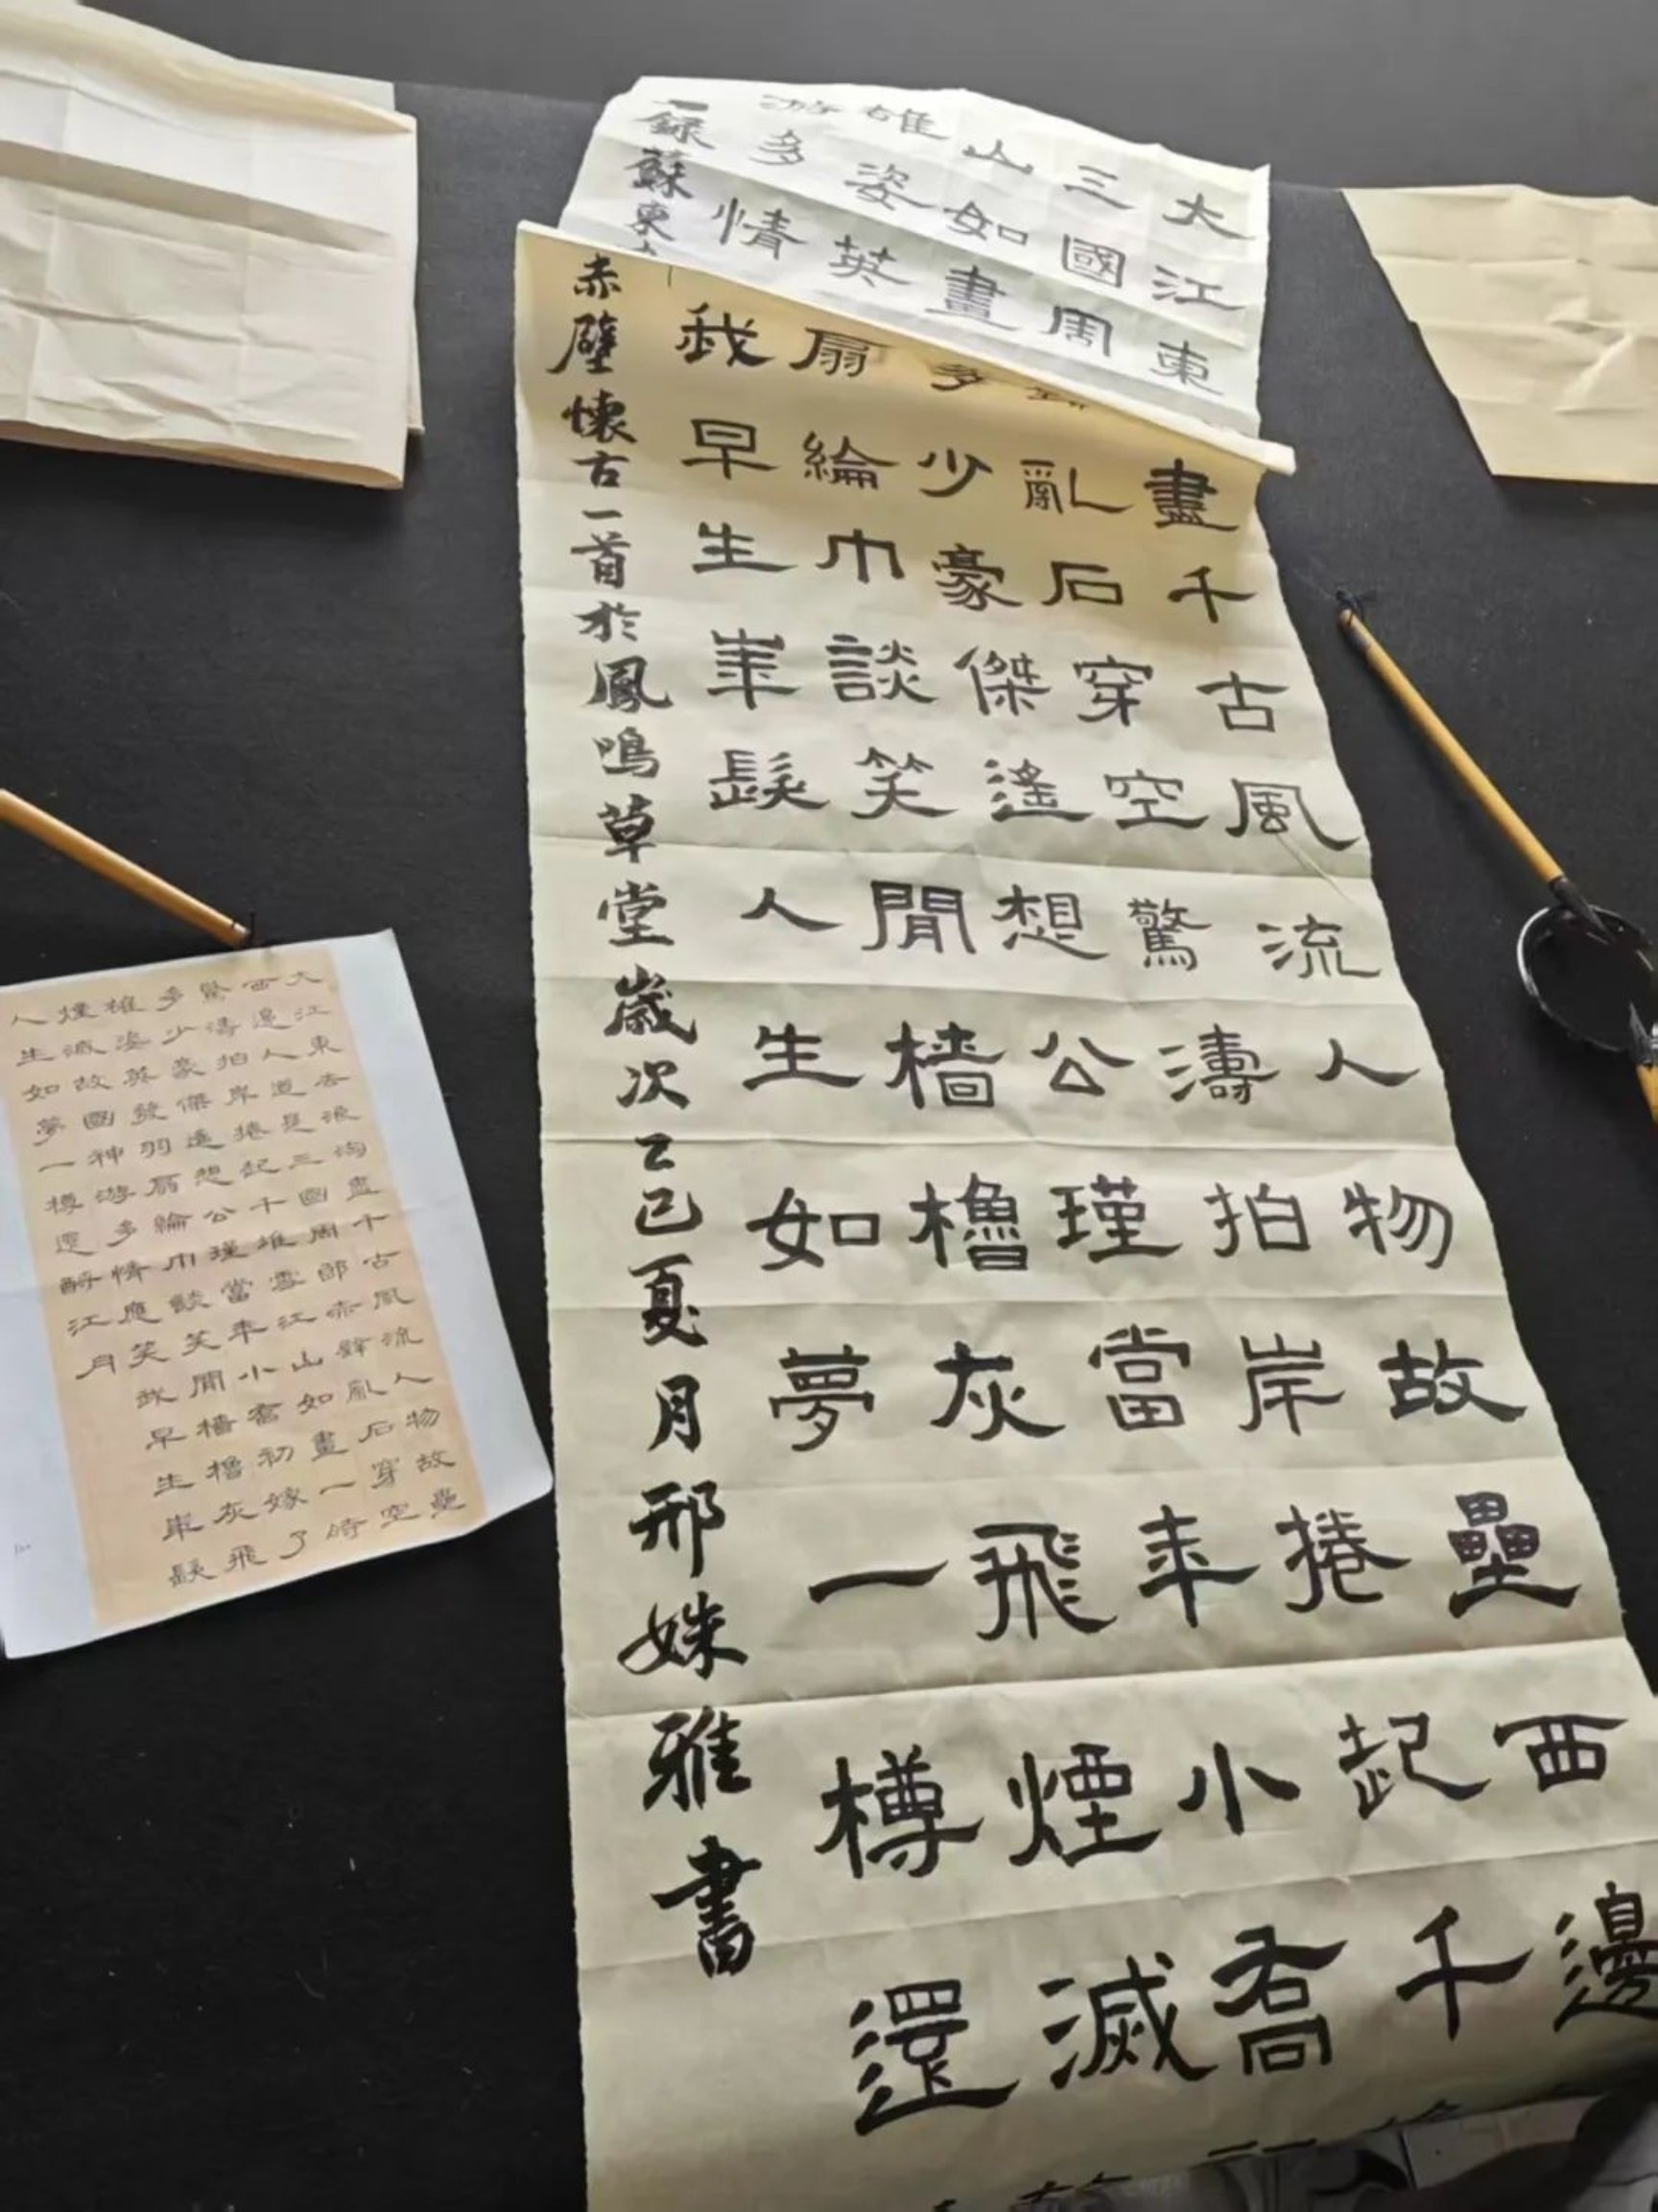 大江東
盡千古風流人物故壘西邊
三國周
亂石穿空驚濤拍岸捲起千
山如畫
多少豪傑遙想公瑾當年小喬
雄姿英
扇綸巾談笑閒檣櫓灰飛煙滅
游多情
我早生華髮人生如夢一樽還
錄蘇東
赤壁懷古一首於鳳鳴草堂歲次乙巳夏月邢姝雅書
大江東去浪淘盡千古風流人物故壘
西邊人道是三國周郎赤壁亂石穿空
驚濤拍岸捲起千堆雪江山如畫一時
多少豪傑遙想公瑾當年小喬初嫁了
雄姿英發羽扇綸巾談笑閒檣櫓灰飛
煙滅故國神游多情應笑我早生華髮
人生如夢一樽還酹江月